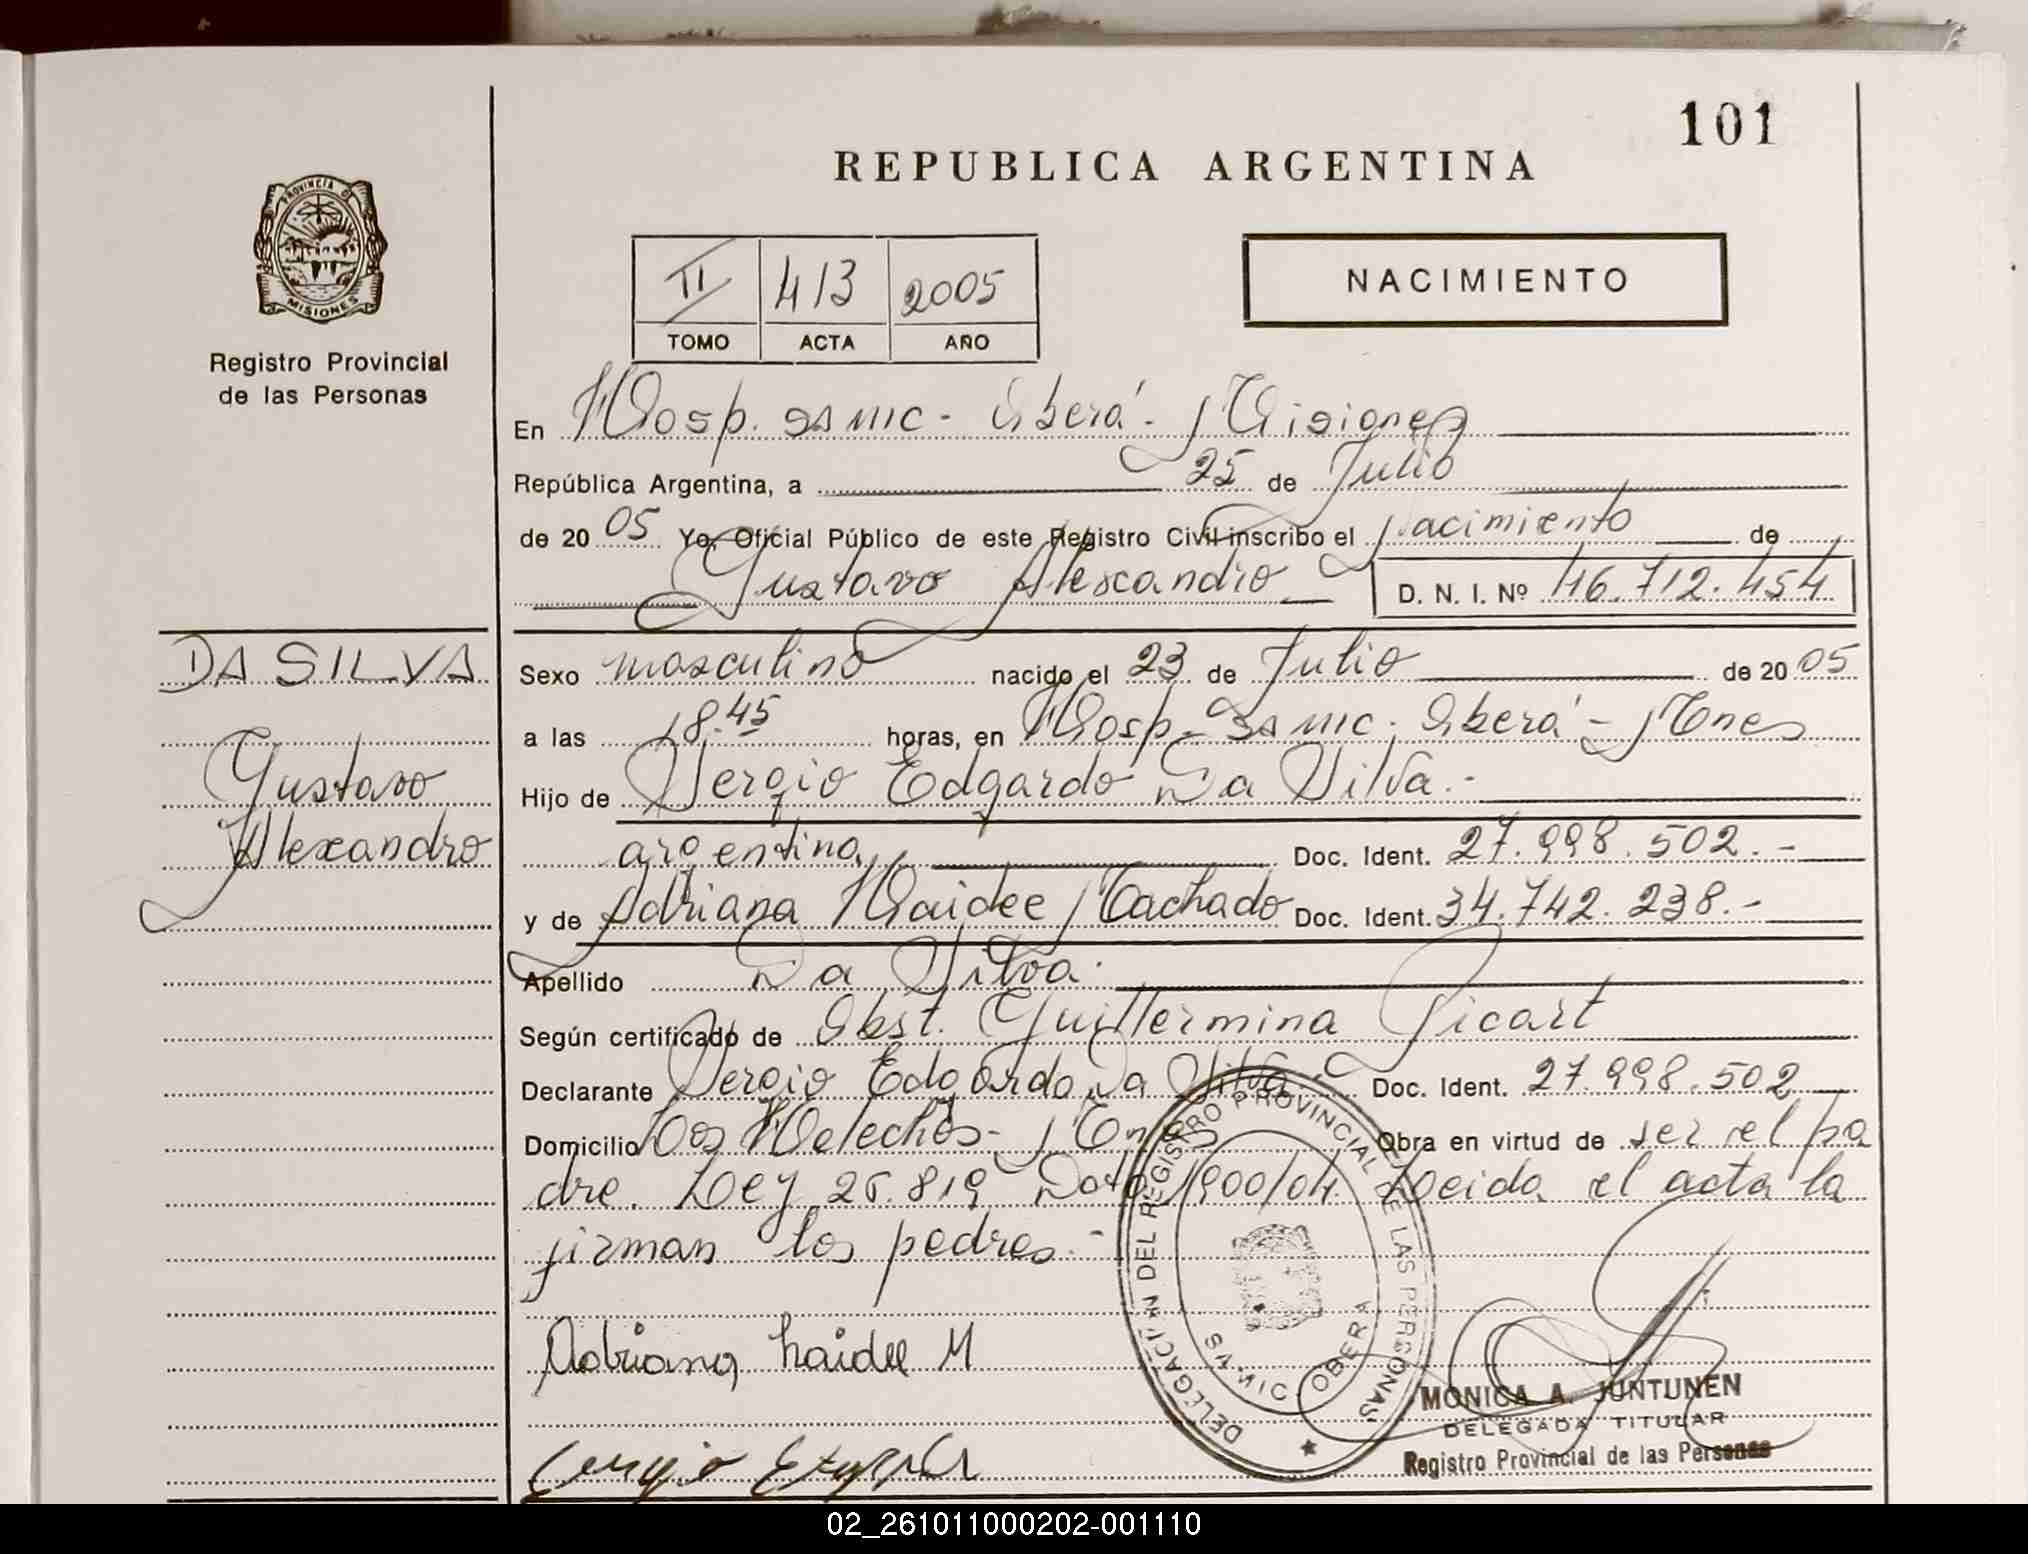 101
REPUBLICA ARGENTINA
PROVINCIA DE
MISIONES
Registro Provincial
de las Personas
II 413 2005
TOMO ACTA AÑO
NACIMIENTO
En Hosp. SAMIC - Oberá - Misiones
República Argentina, a 25 de Julio
de 2005 Yo, Oficial Público de este Registro Civil inscribo el Nacimiento de
Gustavo Alexandro D. N. I. Nº 46.712.454
DA SILVA
Gustavo
Alexandro
Sexo masculino nacido el 23 de Julio de 2005
a las 18.45 horas, en Hosp. SAMIC. Oberá - Mnes
Hijo de Sergio Edgardo Da Silva.-
argentina Doc. Ident. 27.998.502.-
y de Adriana Haidee Machado Doc. Ident. 34.742.238.-
Apellido Da Silva.
Según certificado de Obst. Guillermina Picart
Declarante Sergio Edgardo Da Silva.- Doc. Ident. 27.998.502
Domicilio Los Helechos - Mnes Obra en virtud de ser el pa
dre. Ley 25.819 1900/04. Leida el acta la
firman los padres.-
Adriana haidee M
DELEGACION DEL REGISTRO PROVINCIAL DE LAS PERSONAS
SAMIC OBERA
MONICA A. JUNTUNEN
DELEGADA TITULAR
Registro Provincial de las Personas
02_261011000202-001110